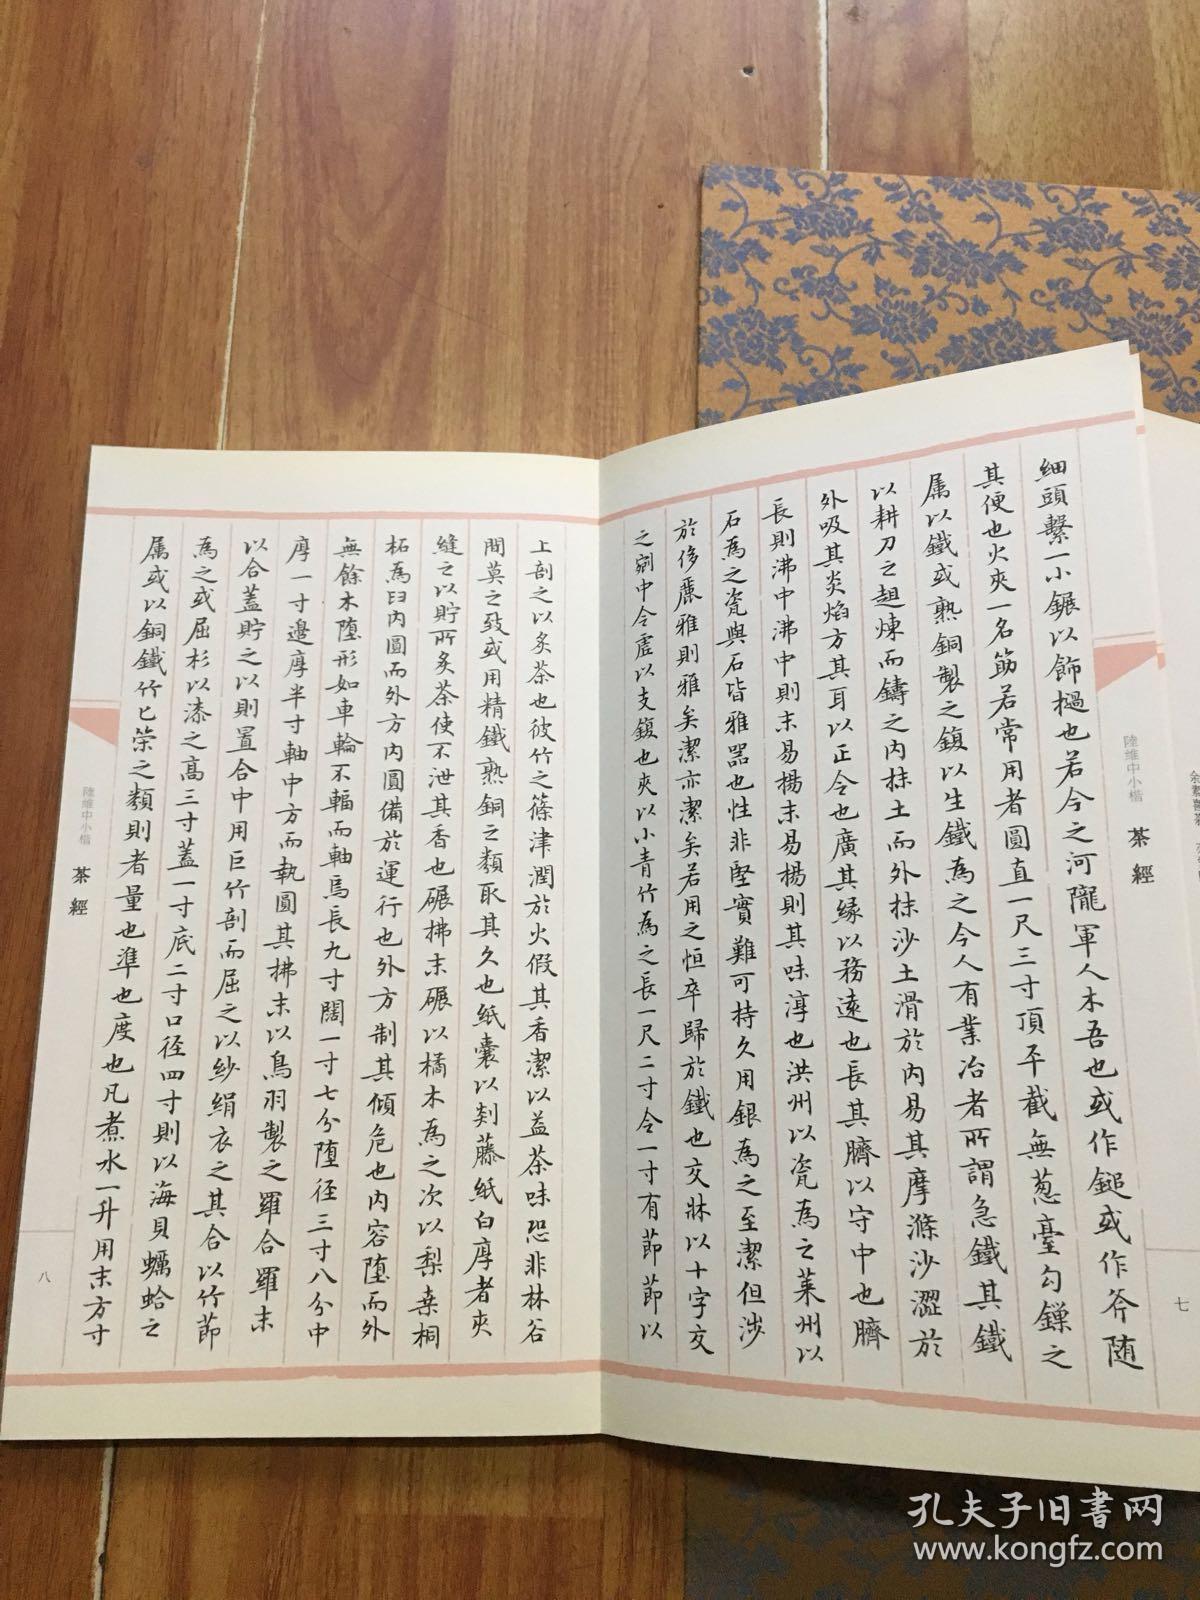 細頭繫一小鐶以飾檛也若今之河隴軍人木吾也或作鎚或作斧随
其便也火夾一名筯若常用者圓直一尺三寸頂平截無葱臺勾鏁之
属以鐵或熟銅製之鍑以生鐵為之今人有業冶者所謂急鐵其鐵
以耕刀之趄煉而鑄之内抹土而外抹沙土滑於内易其摩滌沙澀於
外吸其炎焰方其耳以正令也廣其緣以務遠也長其臍以守中也臍
長則沸中沸中則末易揚末易揚則其味淳也洪州以瓷為之萊州以
石為之瓷與石皆雅器也性非堅實難可持久用銀為之至潔但涉
於侈麗雅則雅矣潔亦潔矣若用之恒卒歸於鐵也交牀以十字交
之剜中令虛以支鍑也夾以小青竹為之長一尺二寸令一寸有節節以
陸維中小楷
茶經
七
上剖之以炙茶也彼竹之篠津潤於火假其香潔以益茶味恐非林谷
間莫之致或用精鐵熟銅之類取其久也紙囊以剡藤紙白厚者夾
縫之以貯所炙茶使不泄其香也碾拂末碾以橘木為之次以梨桑桐
柘為臼内圓而外方内圓備於運行也外方制其傾危也内容堕而外
無餘木堕形如車輪不輻而軸焉長九寸闊一寸七分堕徑三寸八分中
厚一寸邊厚半寸軸中方而執圓其拂末以鳥羽製之羅合羅末
以合蓋貯之以則置合中用巨竹剖而屈之以紗絹衣之其合以竹節
為之或屈杉以漆之高三寸蓋一寸底二寸口徑四寸則以海貝蠣蛤之
属或以銅鐵竹匕策之類則者量也準也度也凡煮水一升用末方寸
陸維中小楷
茶經
八
孔夫子旧书网
www.kongfz.com